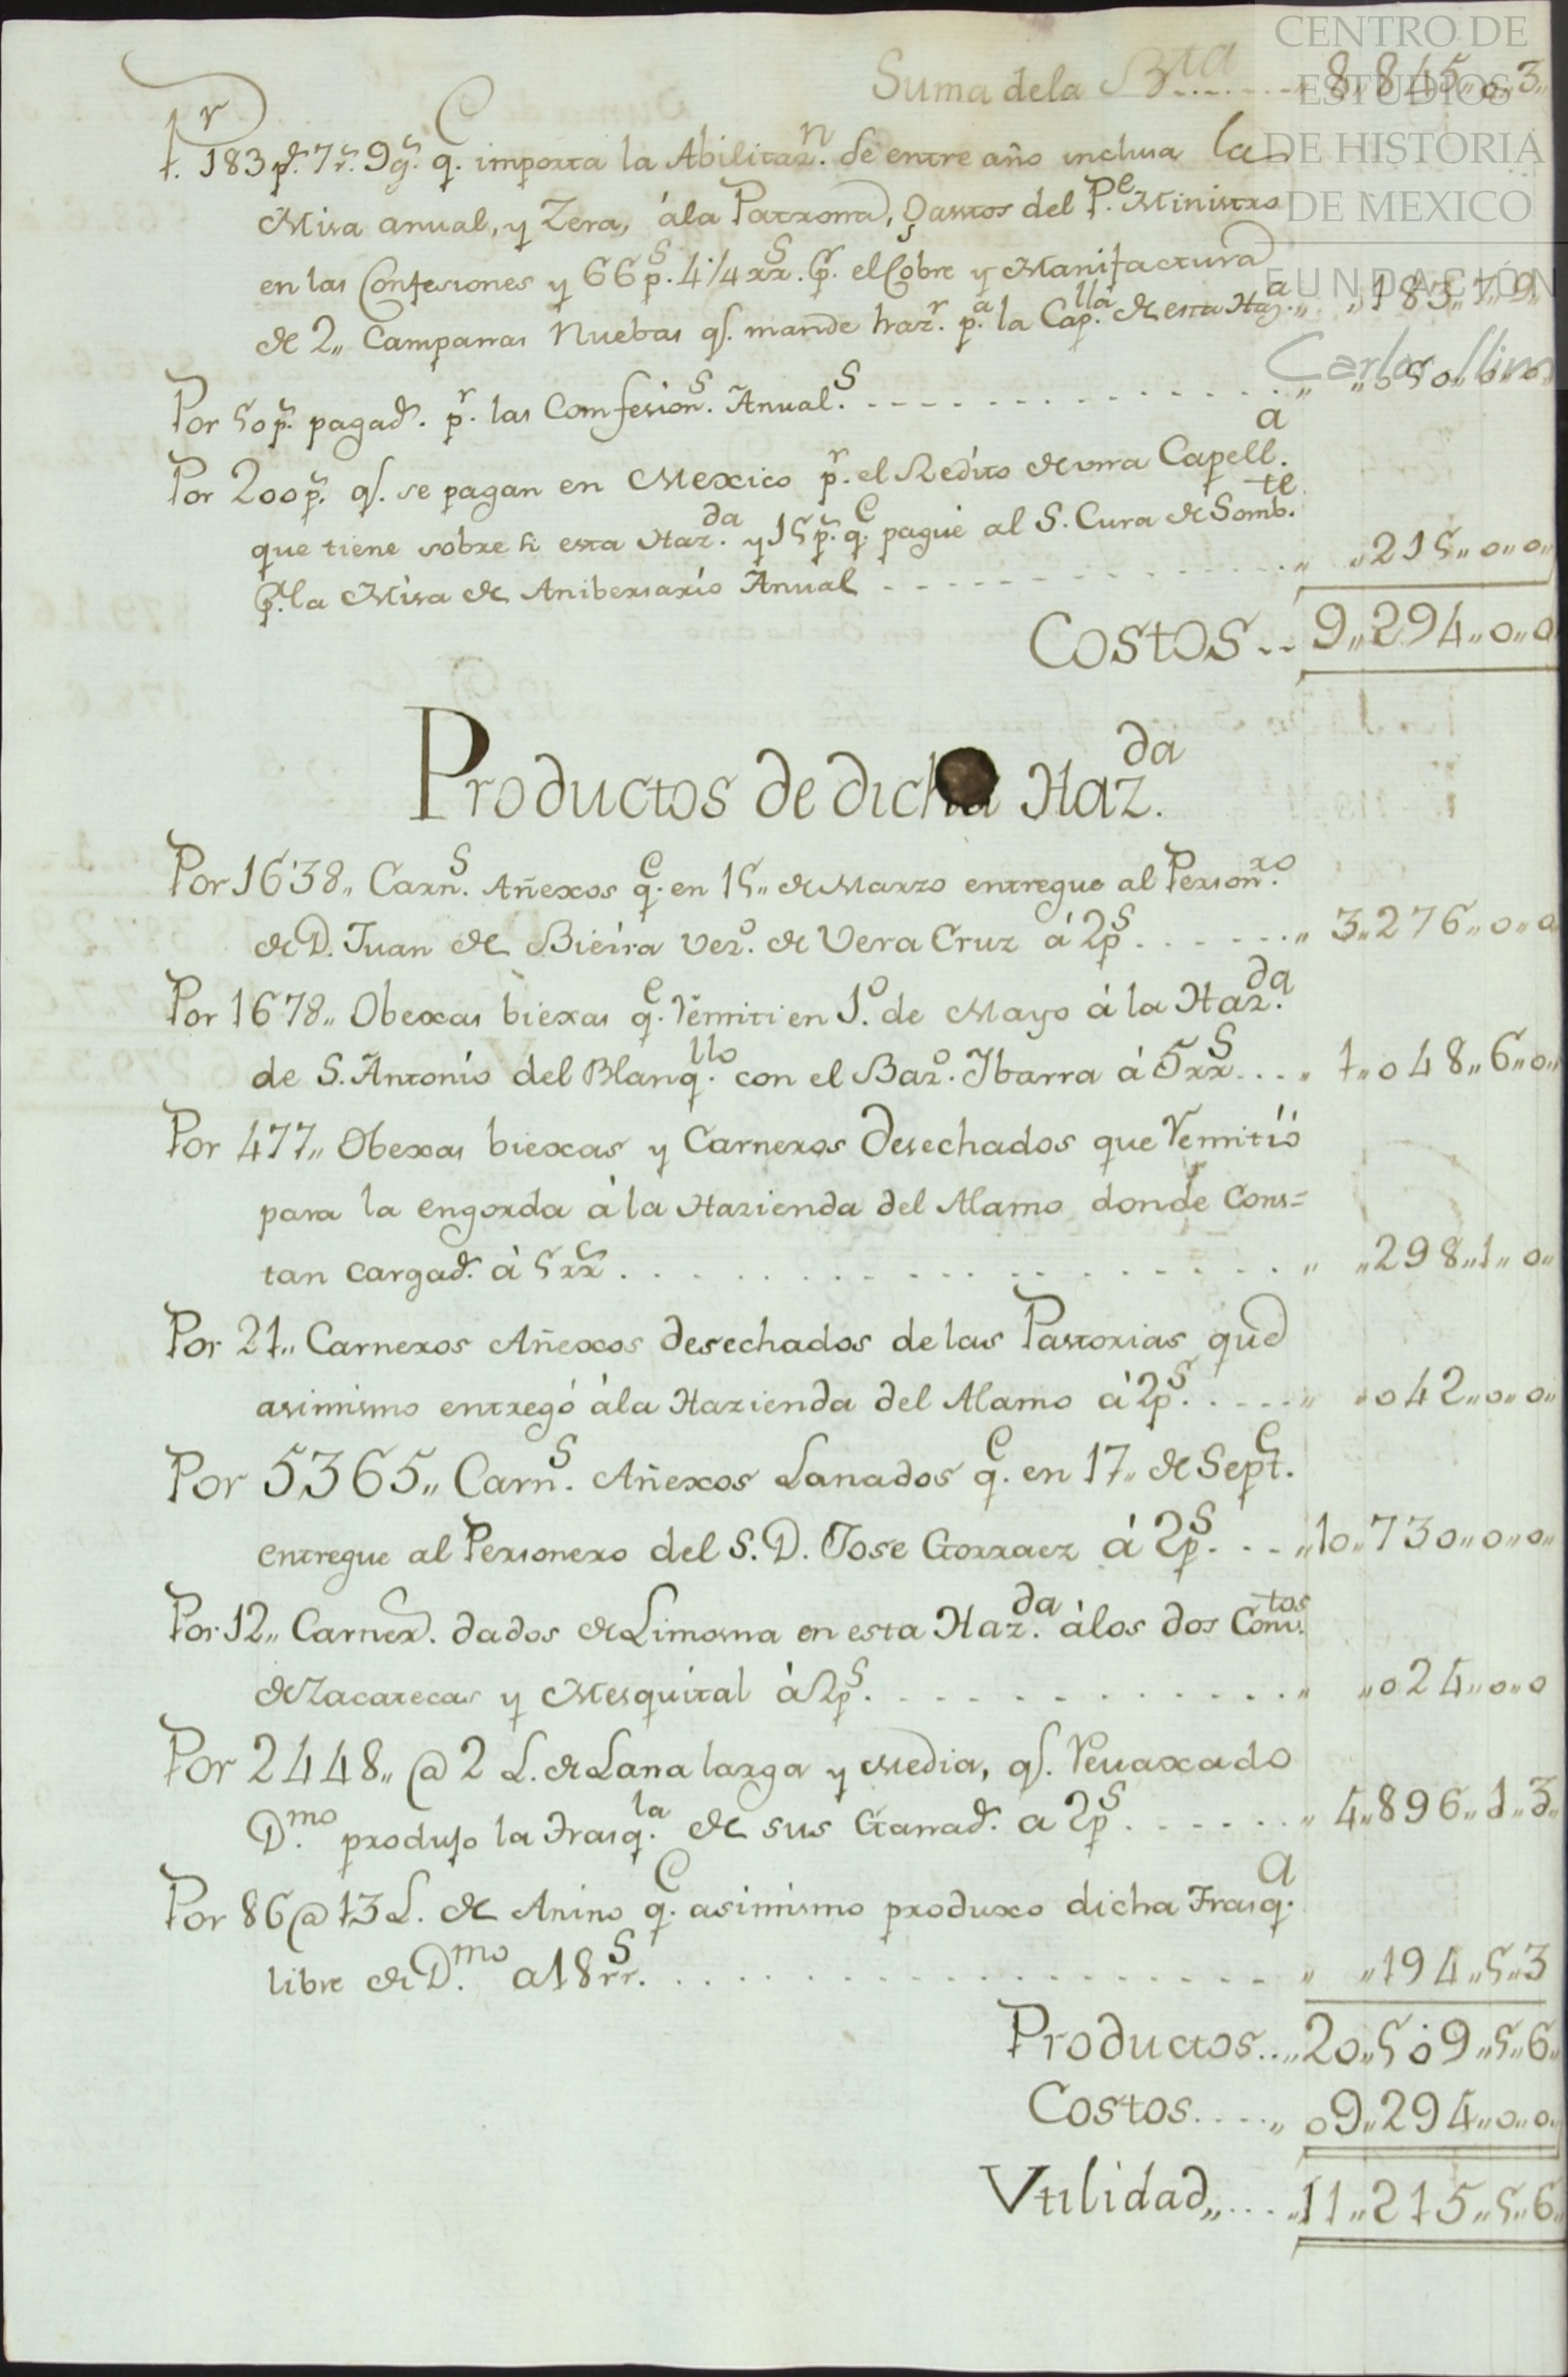 Suma dela Bta........ 8,,845,,0,,3,,
Pr. 183ps. 7rs. 9gs. qe. importa la Abilitazn. de entre año inclusa la
Misa anual, y Zera, àla Patrona, Gastos del Pe. Ministro
en las Confesiones y 66ps. 4¼ rrs. pr. el Cobre y Manifactura
de 2,, Campanas Nuebas qe. mandè hazr. pa. la Caplla. de esta Haza.,, ,,183,,7,,9,,
Por 50ps. pagads. pr. las Comfesions. Anuals. - - - - - - ,, ,,050,,0,,0,,
Por 200ps. qe. se pagan en Mexico pr. el Redito de una Capella.
que tiene sobre si esta Hazda. y 15ps. qe. paguè al S. Cura de Sombte.
pr. la Misa de Anibersario Anual - - - - - - ,, ,,215,,0,,0,,
Costos.. 9,,294,,0,,0
Productos de dicha Hazda.
Por 1638,, Carns. Añexos qe. en 15,, de Marzo entregue al Personro.
de D. Juan de Bieira vezo. de Vera Cruz à 2ps. . . . . . . ,, 3,,276,,0,,0
Por 1678,, Obexas biexas qe. Remiti en 1o. de Mayo à la Hazda.
de S. Antonio del Blanqllo. con el Bazo. Ybarra à 5rrs. . . . ,, 1,,048,,6,,0,,
Por 477,, Obexas biexas y Carneros desechados que Remitiò
para la engorda à la Hazienda del Alamo donde Cons=
tan cargads. à 5rrs. . . . . . . . . . . ,, ,,298,,1,,0,,
Por 21,, Carneros Añexos desechados de las Pastorias que
asimismo entregó àla Hazienda del Alamo à 2ps. . . . . ,, ,,042,,0,,0,,
Por 5365,, Carns. Añexos Lanados qe. en 17,, de Septe.
entregue al Personero del S. D. Jose Gorraez à 2ps. . . . ,,10,,730,,0,,0,,
Por 12,, Carners. dados de Limosna en esta Hazda. àlos dos Convtos.
de Zacatecas y Mesquital à 2ps. . . . . . . . . ,, ,,024,,0,,0
Por 2448,, @ 2 L. de Lana larga y Media, qe. Revaxado
Dmo. produjo la Trasqla. de sus Ganads. a 2ps. . . . . . ,, 4,,896,,1,,3,,
Por 86 @ 13 L. de Anino qe. asimismo produxo dicha Trasqa.
libre de Dmo. a 18 rrs. . . . . . . . . . . ,, ,,194,,5,,3
Productos..,,20,,509,,5,,6,,
Costos....,, 09,,294,,0,,0,,
Vtilidad,,....,,11,,215,,5,,6,,
CENTRO DE
ESTUDIOS
DE HISTORIA
DE MEXICO
FUNDACIÓN
Carlos Slim